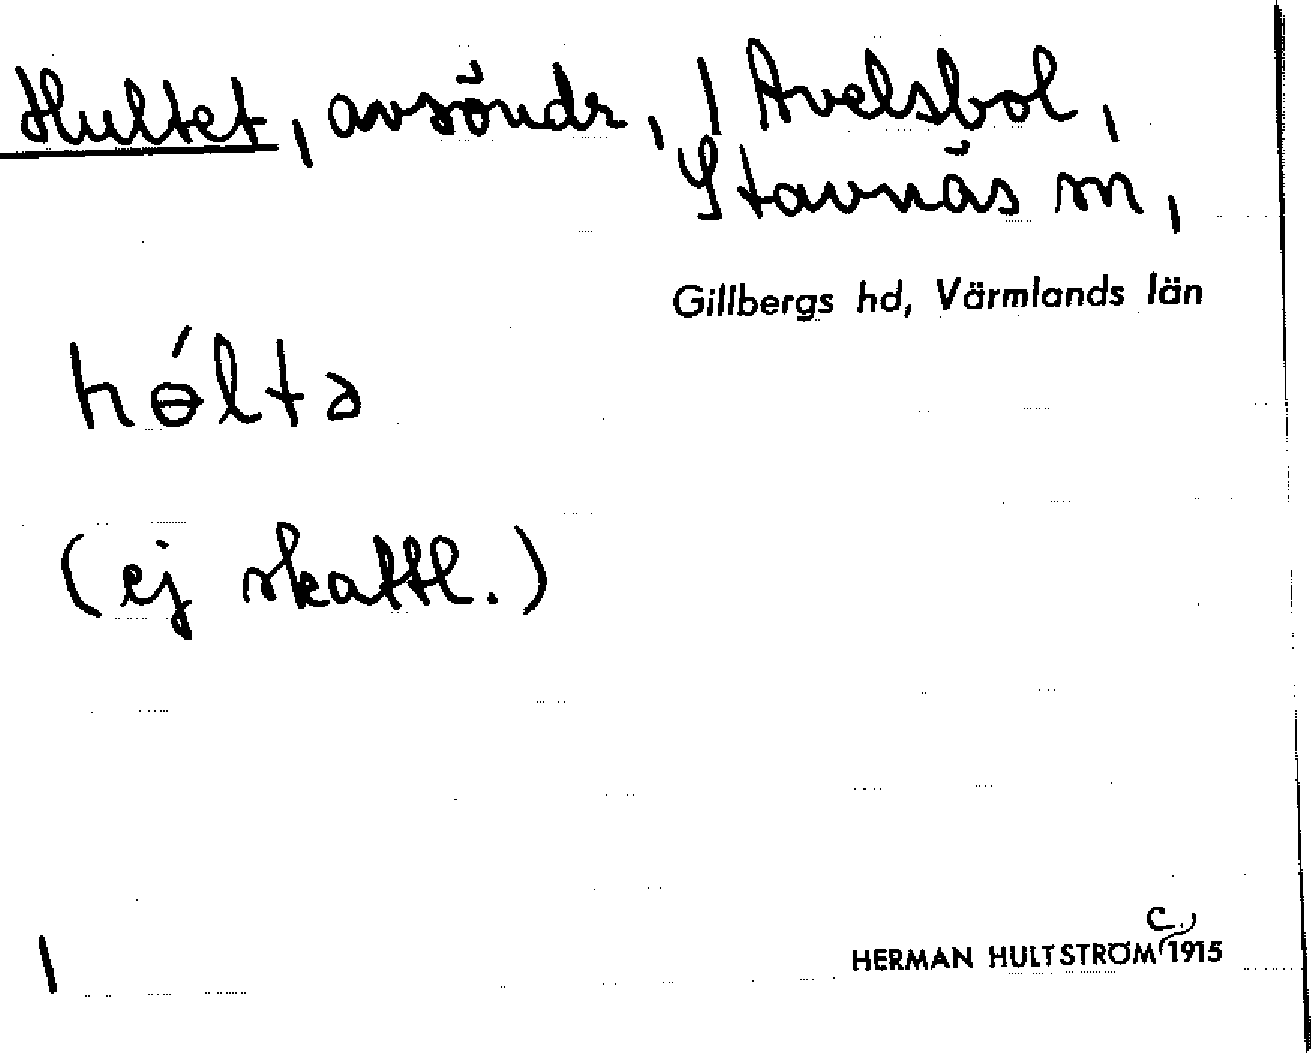 Hultet, avsöndr, / Avelsbol,
Stavnäs sn,
Gillbergs hd, Värmlands län
hɵ́ltə
(ej skattl.)
HERMAN HULTSTRÖM c. 1915